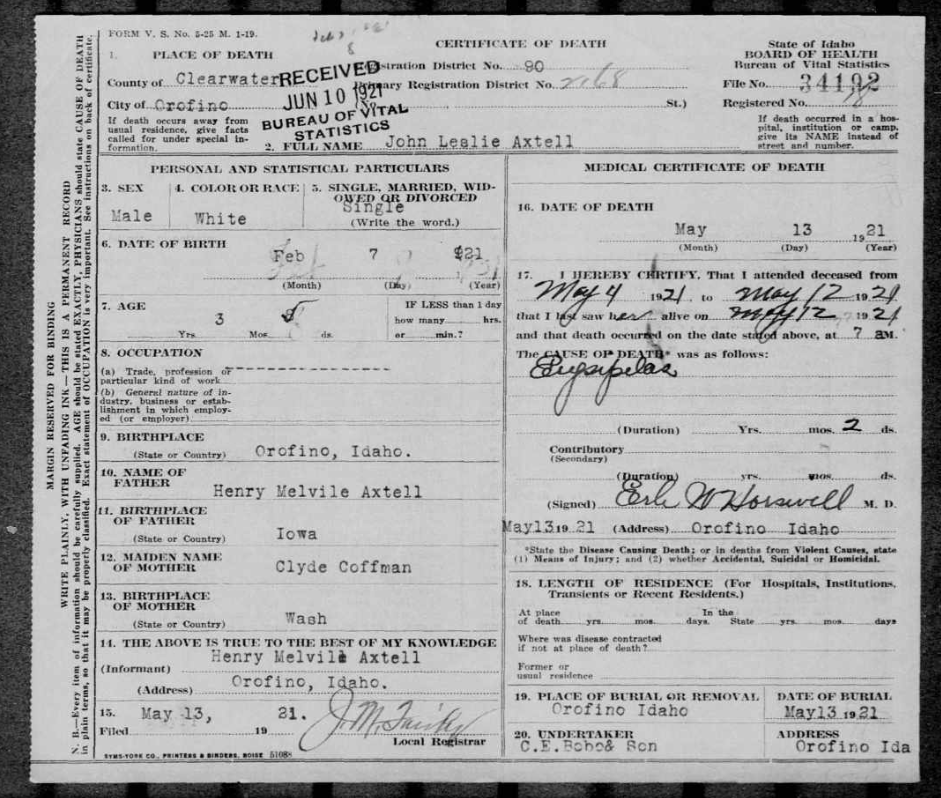 FORM V. S. No. 5-25 M. 1-19.
CERTIFICATE OF DEATH
State of Idaho
BOARD OF HEALTH
Bureau of Vital Statistics
1. PLACE OF DEATH
County of Clearwater
City of Orofino
RECEIVED
JUN 10 1921
BUREAU OF VITAL
STATISTICS
Registration District No. 90
Primary Registration District No. 2168
St.)
File No. 34192
Registered No. 18
If death occurs away from
usual residence, give facts
called for under special in-
formation.
If death occurred in a hos-
pital, institution or camp,
give its NAME instead of
street and number.
2. FULL NAME John Leslie Axtell
PERSONAL AND STATISTICAL PARTICULARS
3. SEX
Male
4. COLOR OR RACE
White
5. SINGLE, MARRIED, WID-
OWED OR DIVORCED
Single
(Write the word.)
6. DATE OF BIRTH
Feb 7 1921
(Month) (Day) (Year)
7. AGE
3 Yrs. Mos. 5 ds.
IF LESS than 1 day
how many hrs.
or min.?
8. OCCUPATION
(a) Trade, profession or
particular kind of work
(b) General nature of in-
dustry, business or estab-
lishment in which employ-
ed (or employer)
9. BIRTHPLACE
(State or Country) Orofino, Idaho.
10. NAME OF
FATHER
Henry Melvile Axtell
11. BIRTHPLACE
OF FATHER
(State or Country) Iowa
12. MAIDEN NAME
OF MOTHER
Clyde Coffman
13. BIRTHPLACE
OF MOTHER
(State or Country) Wash
14. THE ABOVE IS TRUE TO THE BEST OF MY KNOWLEDGE
(Informant) Henry Melvile Axtell
(Address) Orofino, Idaho.
15.
Filed May 13, 19 21.
Local Registrar
SYMS-YORK CO., PRINTERS & BINDERS, BOISE 51088
MEDICAL CERTIFICATE OF DEATH
16. DATE OF DEATH
May 13 1921
(Month) (Day) (Year)
17. I HEREBY CERTIFY, That I attended deceased from
May 4 1921, to May 12 1921
that I last saw her alive on May 12 1921
and that death occurred on the date stated above, at 7 aM.
The CAUSE OF DEATH* was as follows:
Erysipelas
(Duration) Yrs. mos. 2 ds.
Contributory
(Secondary)
(Duration) yrs. mos. ds.
(Signed) Erle W Horswell M. D.
May13 19 21 (Address) Orofino Idaho
*State the Disease Causing Death; or in deaths from Violent Causes, state
(1) Means of Injury; and (2) whether Accidental, Suicidal or Homicidal.
18. LENGTH OF RESIDENCE (For Hospitals, Institutions,
Transients or Recent Residents.)
At place
of death yrs. mos. days. In the
State yrs. mos. days
Where was disease contracted
if not at place of death?
Former or
usual residence
19. PLACE OF BURIAL OR REMOVAL
Orofino Idaho
DATE OF BURIAL
May13 1921
20. UNDERTAKER
C.E.Bobo& Son
ADDRESS
Orofino Ida
MARGIN RESERVED FOR BINDING
WRITE PLAINLY, WITH UNFADING INK—THIS IS A PERMANENT RECORD
N. B.—Every item of information should be carefully supplied. AGE should be stated EXACTLY, PHYSICIANS should state CAUSE OF DEATH
in plain terms, so that it may be properly classified. Exact statement of OCCUPATION is very important. See instructions on back of certificate.